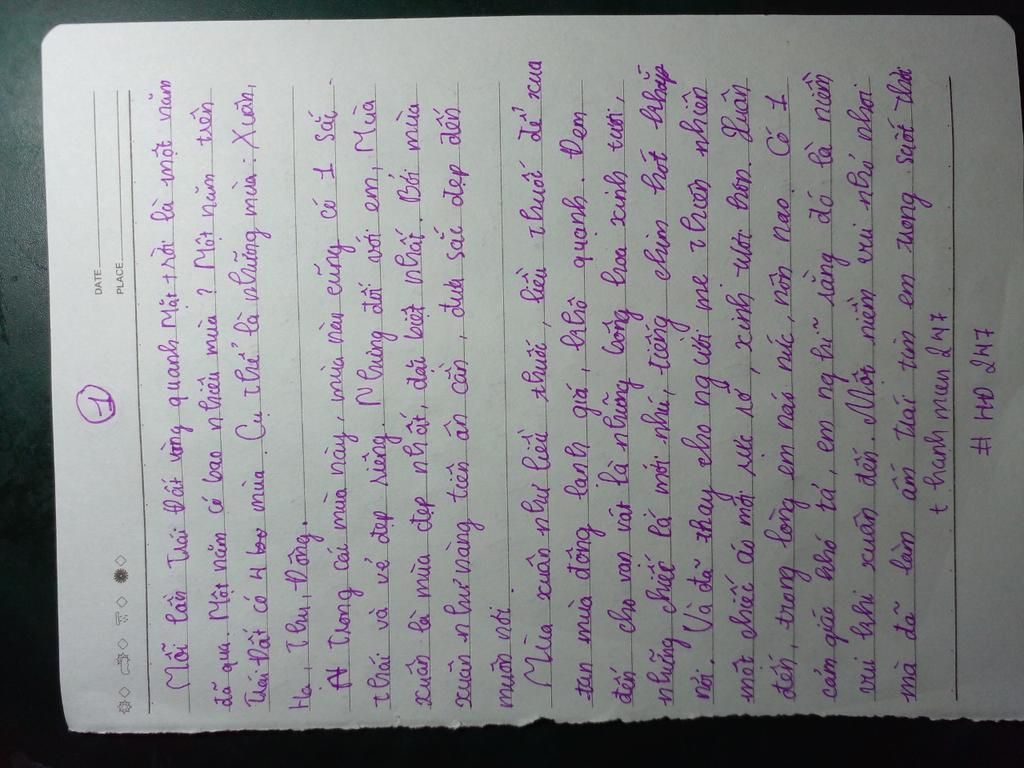 DATE
PLACE
1
Mỗi lần Trái Đất vòng quanh Mặt trời là một năm
đã qua. Một năm có bao nhiêu mùa? Một năm trên
Trái Đất có 4 mùa. Cụ thể là những mùa: Xuân,
Hạ, Thu, Đông.
Trong các mùa này, mùa nào cũng có 1 sắc
thái và vẻ đẹp riêng. Nhưng đối với em, Mùa
xuân là mùa đẹp nhất, đặc biệt nhất. Bởi mùa
xuân như nàng tiên ân cần, đưa sắc đẹp đến
muôn nơi.
Mùa xuân như liều thuốc, liều thuốc để xua
tan mùa đông lạnh giá, khô quạnh. Đem
đến cho vạn vật là những bông hoa xinh tươi,
những chiếc lá mới nhú, tiếng chim hót khắp
nơi. Và đã thay cho người mẹ thiên nhiên
một chiếc áo mới rực rỡ, xinh tươi hơn. Xuân
đến, trong lòng em náo nức, nôn nao. Có 1
cảm giác khó tả, em nghĩ rằng đó là niềm
vui khi xuân đến. Một niềm vui nhỏ nhoi
mà đã làm ấm trái tim em trong suốt thời
thanhmien247
# HD 247